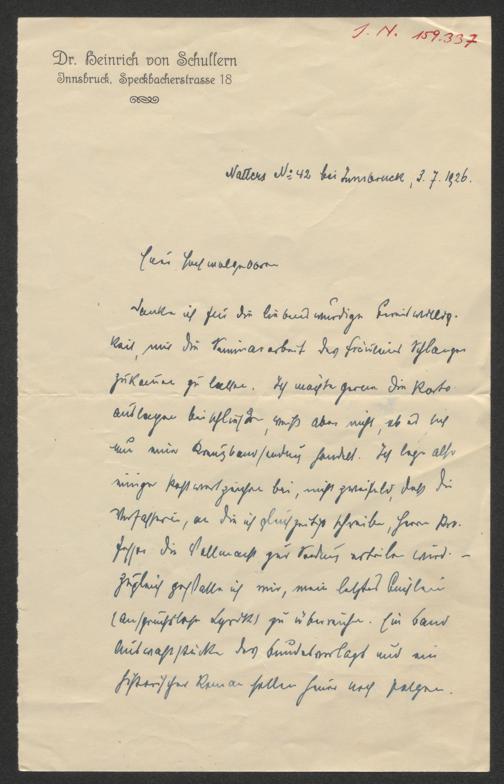 J. N. 159.337
Dr. Heinrich von Schullern
Innsbruck, Speckbacherstrasse 18
Natters No 42 bei Innsbruck, 3. 7. 1926.
Euer Hochwolgeboren
danke ich für die liebenswürdige Bereitwillig-
keit, mir die Seminararbeit des Fräuleins Schlanger
zukommen zu lassen. Ich möchte gerne die Porto-
auslagen beischließen, weiß aber nicht, ob es sich
um eine Kreuzbandsendung handelt. Ich lege also
einige Postwertzeichen bei, nicht zweifelnd, daß die
Verfasserin, an die ich gleichzeitig schreibe, Herrn Pro-
fessor die Vollmacht zur Sendung erteilen wird. –
Zugleich gestatte ich mir, mein letztes Büchlein
(anspruchslose Lyrik) zu überreichen. Ein Band
Auswahlstücke des Bundesverlags und ein
historischer Roman sollen heuer noch folgen.